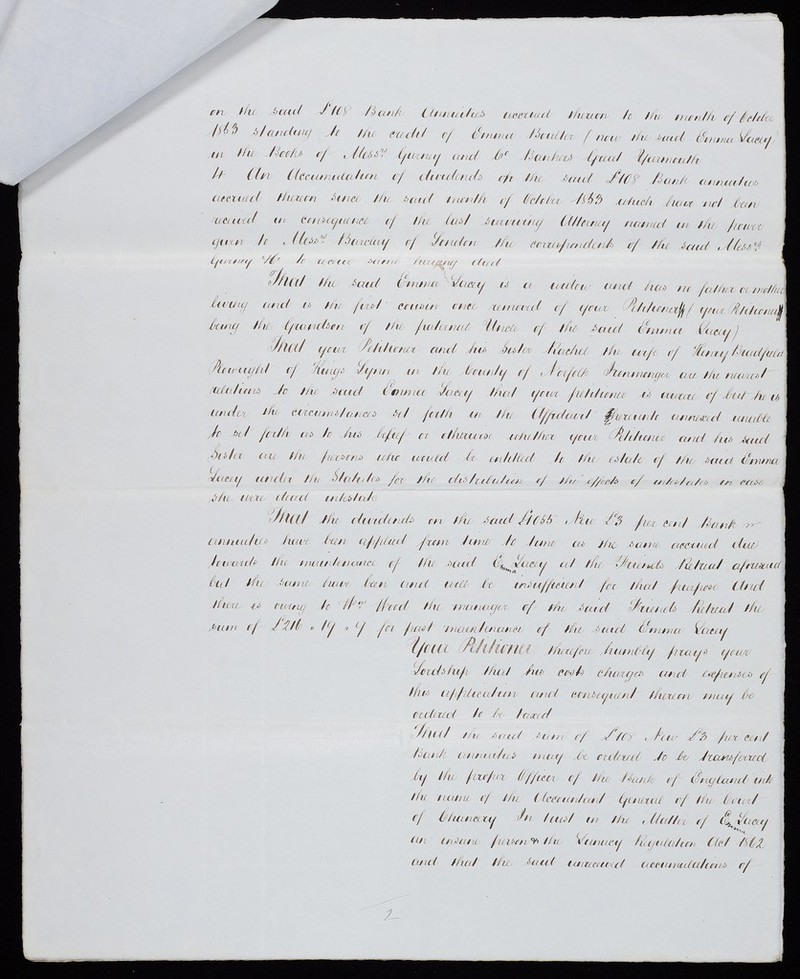 on the said £108 Bank Annuities accrued thereon to the month of October
1853 standing to the credit of Emma Boulter (now the said Emma Lacey)
in the Books of Messrs Gurney and Co Bankers Great Yarmouth
4 An Accumulation of dividends on the said £108 Bank annuities
accrued thereon since the said month of October 1853 which have not been
received in consequence of the last surviving Attorney named in the power
given to Messrs Barclay of London the correspondents of the said Messrs
Gurney &c to receive same having died
That the said Emma Lacey is a widow and has no father or mother
living and is the first cousin once removed of your Petitioner (your Petitioner
being the Grandson of the paternal Uncle of the said Emma Lacey)
That your Petitioner and his Sister Rachel the wife of Henry Bradfield
of Kings Lynn in the County of Norfolk Ironmonger are the nearest
relations to the said Emma Lacey that your petitioner is aware of but he is
under the circumstances set forth in the Affidavit hereunto annexed unable
to set forth as to his belief or otherwise whether your Petitioner and his said
Sister are the persons who would be entitled to the estate of the said Emma
Lacey under the Statutes for the distribution of the effects of intestates in case
she were dead intestate
That the dividends on the said £1055 New £3 per cent Bank
annuities have been applied from time to time as the same accrued due
towards the maintenance of the said Emma Lacey at the Friends Retreat aforesaid
but the same have been and will be insufficient for that purpose And
there is owing to Wm Wood the manager of the said Friends Retreat the
sum of £216 . 19 . 9 for past maintenance of the said Emma Lacey
Your Petitioner therefore humbly prays your
Lordship that his costs charges and expenses of
this application and consequent thereon may be
ordered to be taxed
That the said sum of £108 New £3 per cent
Bank annuities may be ordered to be transferred
by the proper Officer of the Bank of England into
the name of the Accountant General of the Court
of Chancery In trust in the Matter of Emma Lacey
an insane person & the Lunacy Regulation Act 1862
and that the said unreceived accumulations of
2